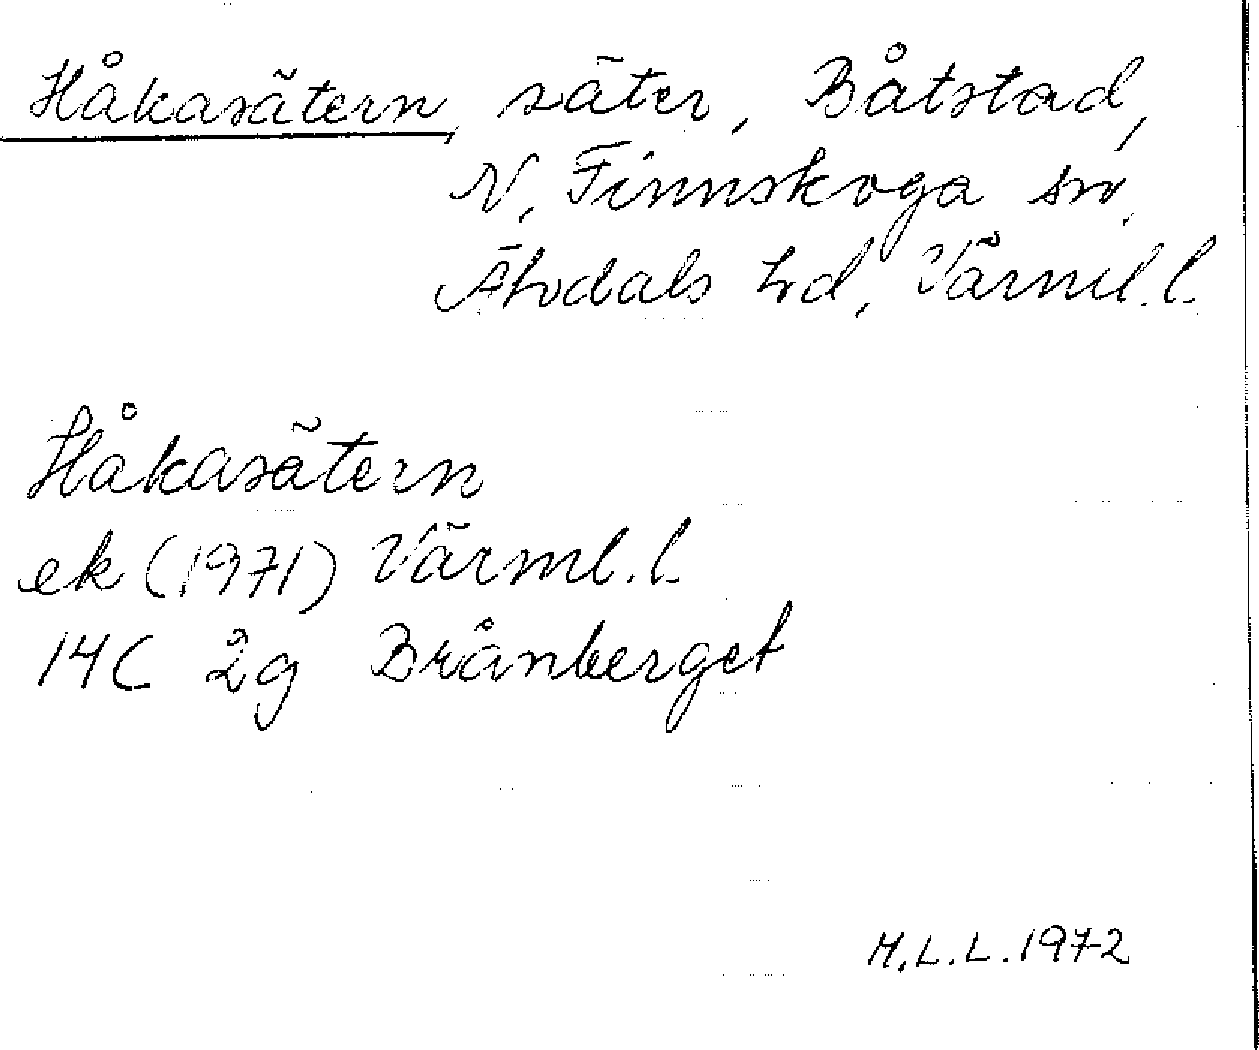 Håkasätern, säter, Båtstad,
N. Finnskoga sn,
Älvdals hd, Värml. l.
Håkasätern
ek (1971) Värml. l.
14C 2g Brånberget
M.L.L. 1972